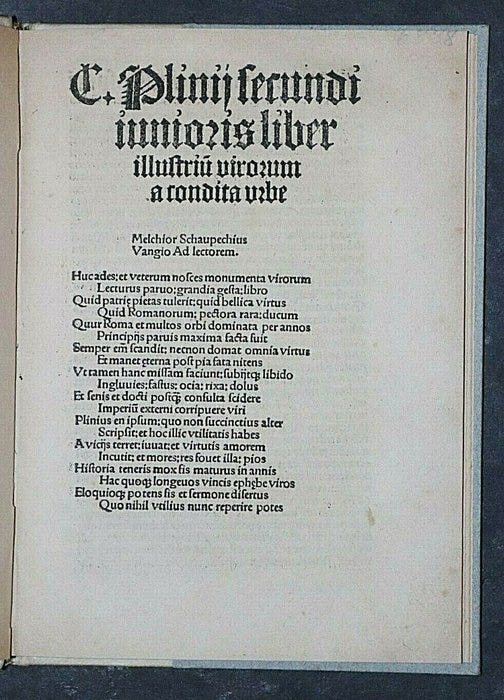 C. Plinij secundi
iunioris liber
illustriū virorum
a condita vrbe
Melchior Schaupechius
Vangio Ad lectorem.
Huc ades: et veterum nosces monumenta virorum
Lecturus paruo: grandia gesta: libro
Quid patrię pietas tulerit: quid bellica virtus
Quid Romanorum: pectora rara: ducum
Quur Roma et multos orbi dominata per annos
Principijs paruis maxima facta fuit
Semper em̄ scandit: necnon domat omnia virtus
Et manet ęterna post pia fata nitens
Vt tamen hanc missam faciunt: subijtqȝ libido
Ingluuies: fastus: ocia: rixa: dolus
Et senis et docti postqȝ consulta scidere
Imperiū externi corripuere viri
Plinius en ipsum: quo non succinctius alter
Scripsit: et hoc illic vtilitatis habes
A vicijs terret: iuuat: et virtutis amorem
Incutit: et mores: res fouet illa: pios
Historia teneris mox sis maturus in annis
Hac quoqȝ longeuos vincis ephębe viros
Eloquioqȝ potens sis et sermone disertus
Quo nihil vtilius nunc reperire potes